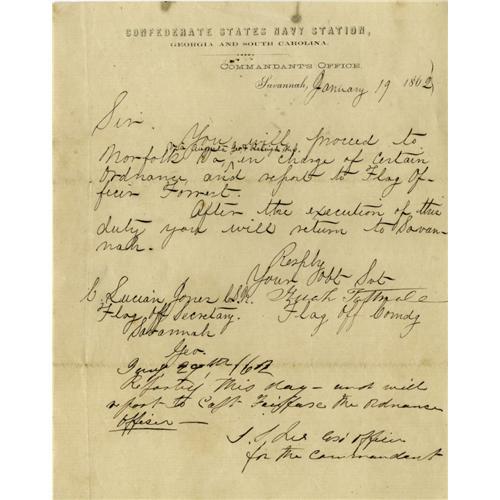 CONFEDERATE STATES NAVY STATION,
GEORGIA AND SOUTH CAROLINA.
COMMANDANT'S OFFICE.
Savannah, January 19 1862
Sir.
You will proceed to
via Augusta Geo &
Norfolk Va, in charge of certain
Ordnance, and report to Flag Of-
ficer Forrest.
After the execution of this
duty you will return to Savan-
nah.
Resply
Your Obt Svt
C. Lucian Jones Esq.
Flag Off Secretary.
Flag Off Comdg
Savannah
Geo.
29th /62
this day - and will
report to Capt the Ordnance
Officer —
S. S. Lee officer
for the Commandant